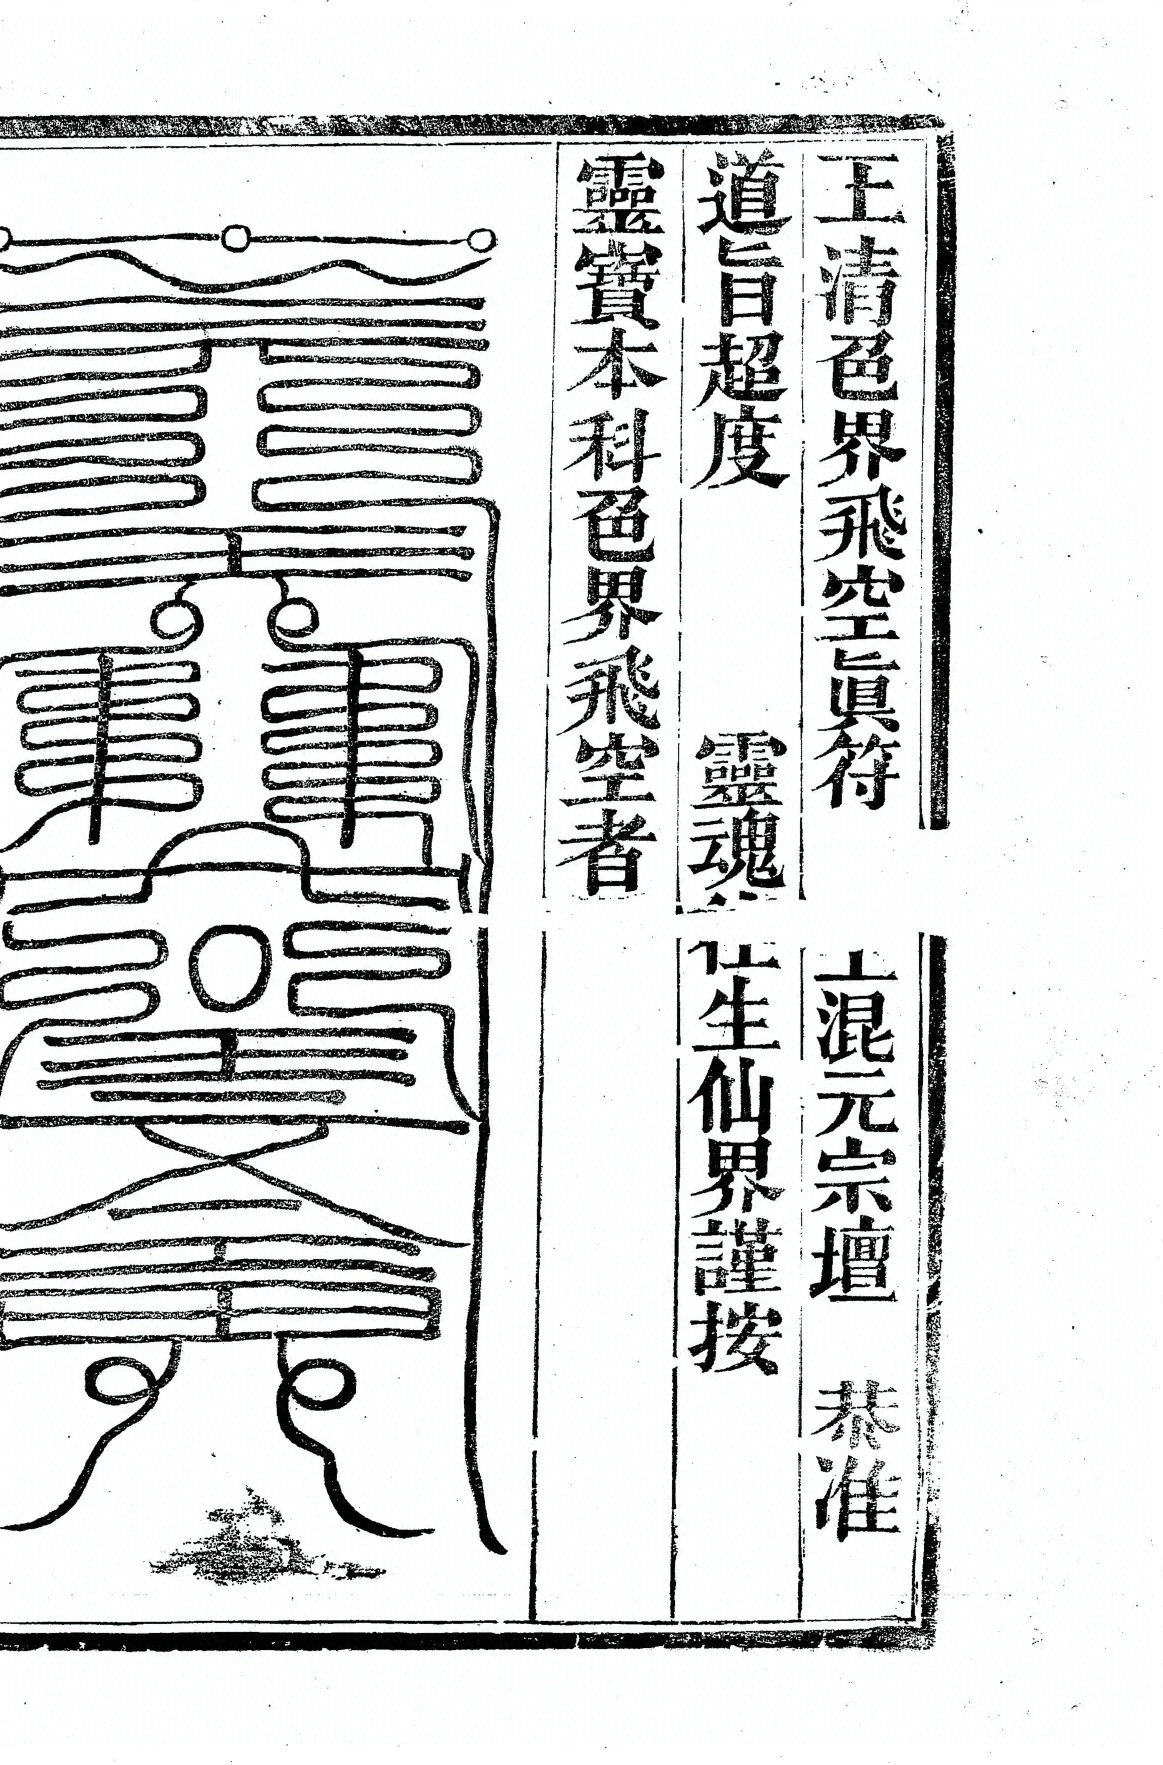 玉清色界飛空眞符　混元宗壇　恭准
道旨超度　靈魂往生仙界謹按
靈寶本科色界飛空者